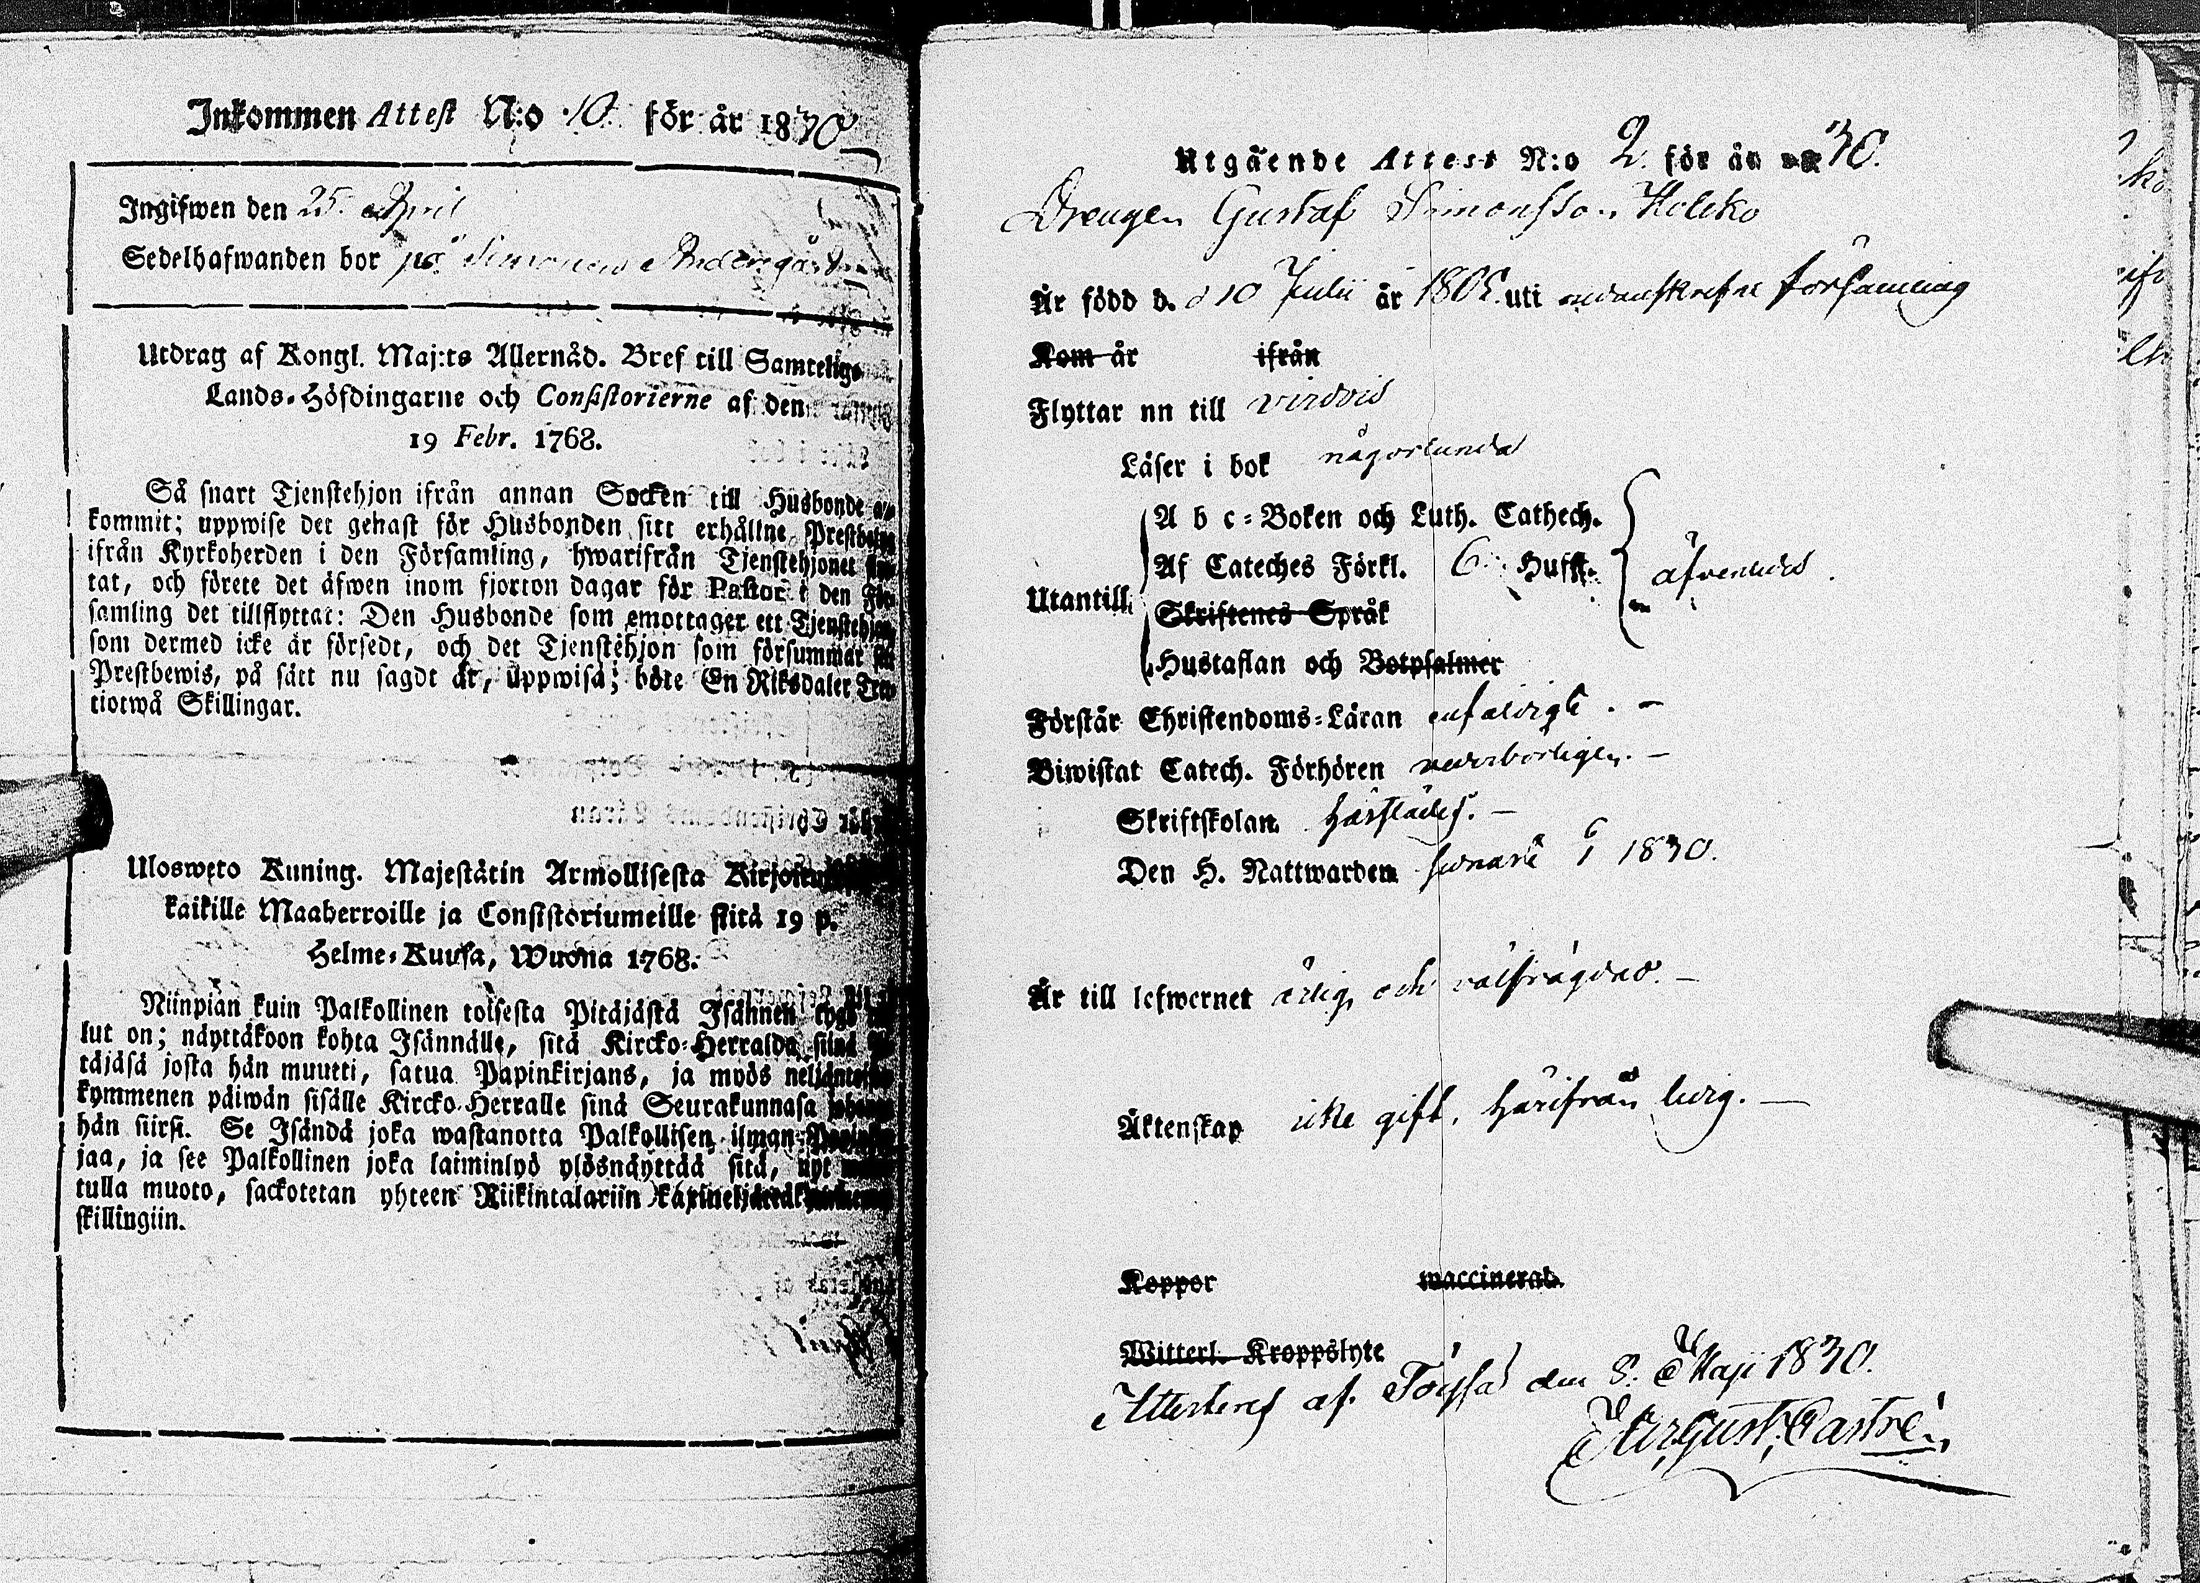 Inkommen Attest N:o 10. för år 1830
Ingifwen den 25. April
Sedelhafwanden bor på Simonens
Utdrag af Kongl. Maj:ts Allernåd. Bref till Samtelige
Lands-Höfdingarne och Consistorierne af den
19 Febr. 1768.
Så snart Tjenstehjon ifrån annan Socken till Husbonde
kommit; uppwise det gehast för Husbonden sitt erhållne
ifrån Kyrkoherden i den Församling, hwarifrån Tjenstehjonet
tat, och förete det äfwen inom fjorton dagar för Pastor i den
samling det tillflyttat: Den Husbonde som emottager ett
som dermed icke är försedt, och det Tjenstehjon som försummar
Prestbewis, på sätt nu sagdt är, uppwisa; böte En Riksdaler
tiotwå Skillingar.
Ulosweto Kuning. Majestätin Armollisesta
kaikille Maaherroille ja Consistoriumeille siitä 19 p.
Helme-Kuusa, Wuona 1768.
Niinpiän kuin Palkollinen toisesta Pitäjästä Isännen
lut on; näyttäkoon kohta Isännälle, sitä Kircko-Herralda siinä
täjäsä josta hän muutti, satua Papinkirjans, ja myös
kymmenen päiwän sisälle Kircko-Herralle sinä Seurakunnasa
hän siirsi. Se Isändä joka wastanotta Palkollisen ilman
jaa, ja see Palkollinen joka laiminlyö ylösnäyttää sitä, nyt
tulla muoto, sackotetan yhteen Riikintalariin
skillingiin.
Utgående Attest N:o 2. för år 30.
Drengen Gustaf Simonsson Kolcko
Är född d. d 10 Julii år 1805. uti nedanskrefne församling
Kom år ifrån
Flyttar nu till Virdois
Läser i bok någorlunda
A b c-Boken och Luth. Cathech.
Af Cateches Förkl. 6. Hufst. äfvenledes.
Utantill
Skriftenes Språk
Hustaflan och Botpsalmer
Förstår Christendoms-Läran enfaldigt. –
Biwistat Catech. Förhören vederbörligen. –
Skriftskolan härstädes. –
Den H. Nattwarden senare 1830.
Är till lefwernet ärlig och välfrägdad. –
Äktenskap icke gift, härifrån ledig. –
Koppor waccinerad.
Witterl. Kroppslyte
Attesteras af. Töysä den 8. Maji 1830.
August Castrén